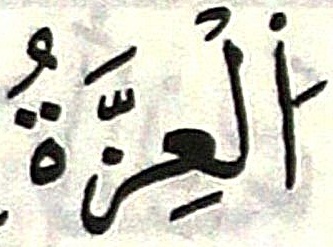 اَلْعِزَّةُ